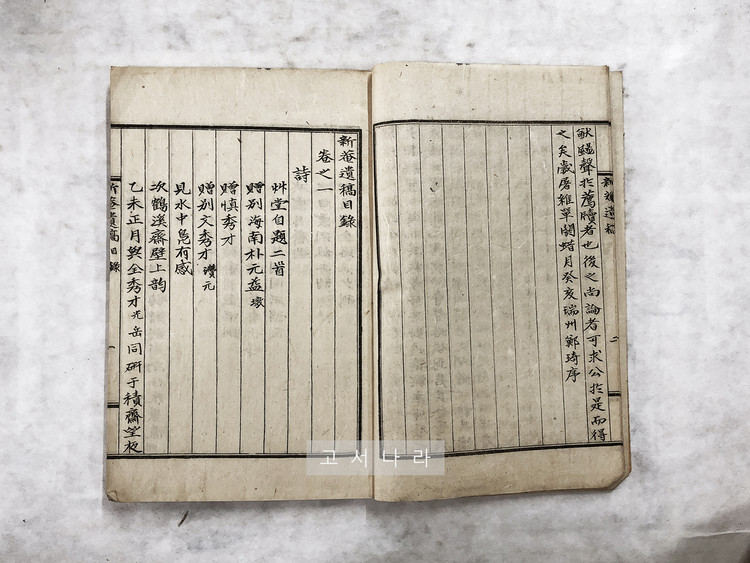 猷與聲於薦牘者也後之尚論者可求公於是而得
之矣歲屠維單閼蜡月癸亥瑞州鄭琦序
新菴遺稿
二
新菴遺稿目錄
卷之一
詩
艸堂自題二首
贈別海南朴元益墩
贈慎秀才
贈別文秀才瓚元
見水中鳧有感
次鶴溪齋壁上韵
乙未正月與全秀才光岳同硏于積齋堂夜
新菴遺稿目錄
一
고서나라